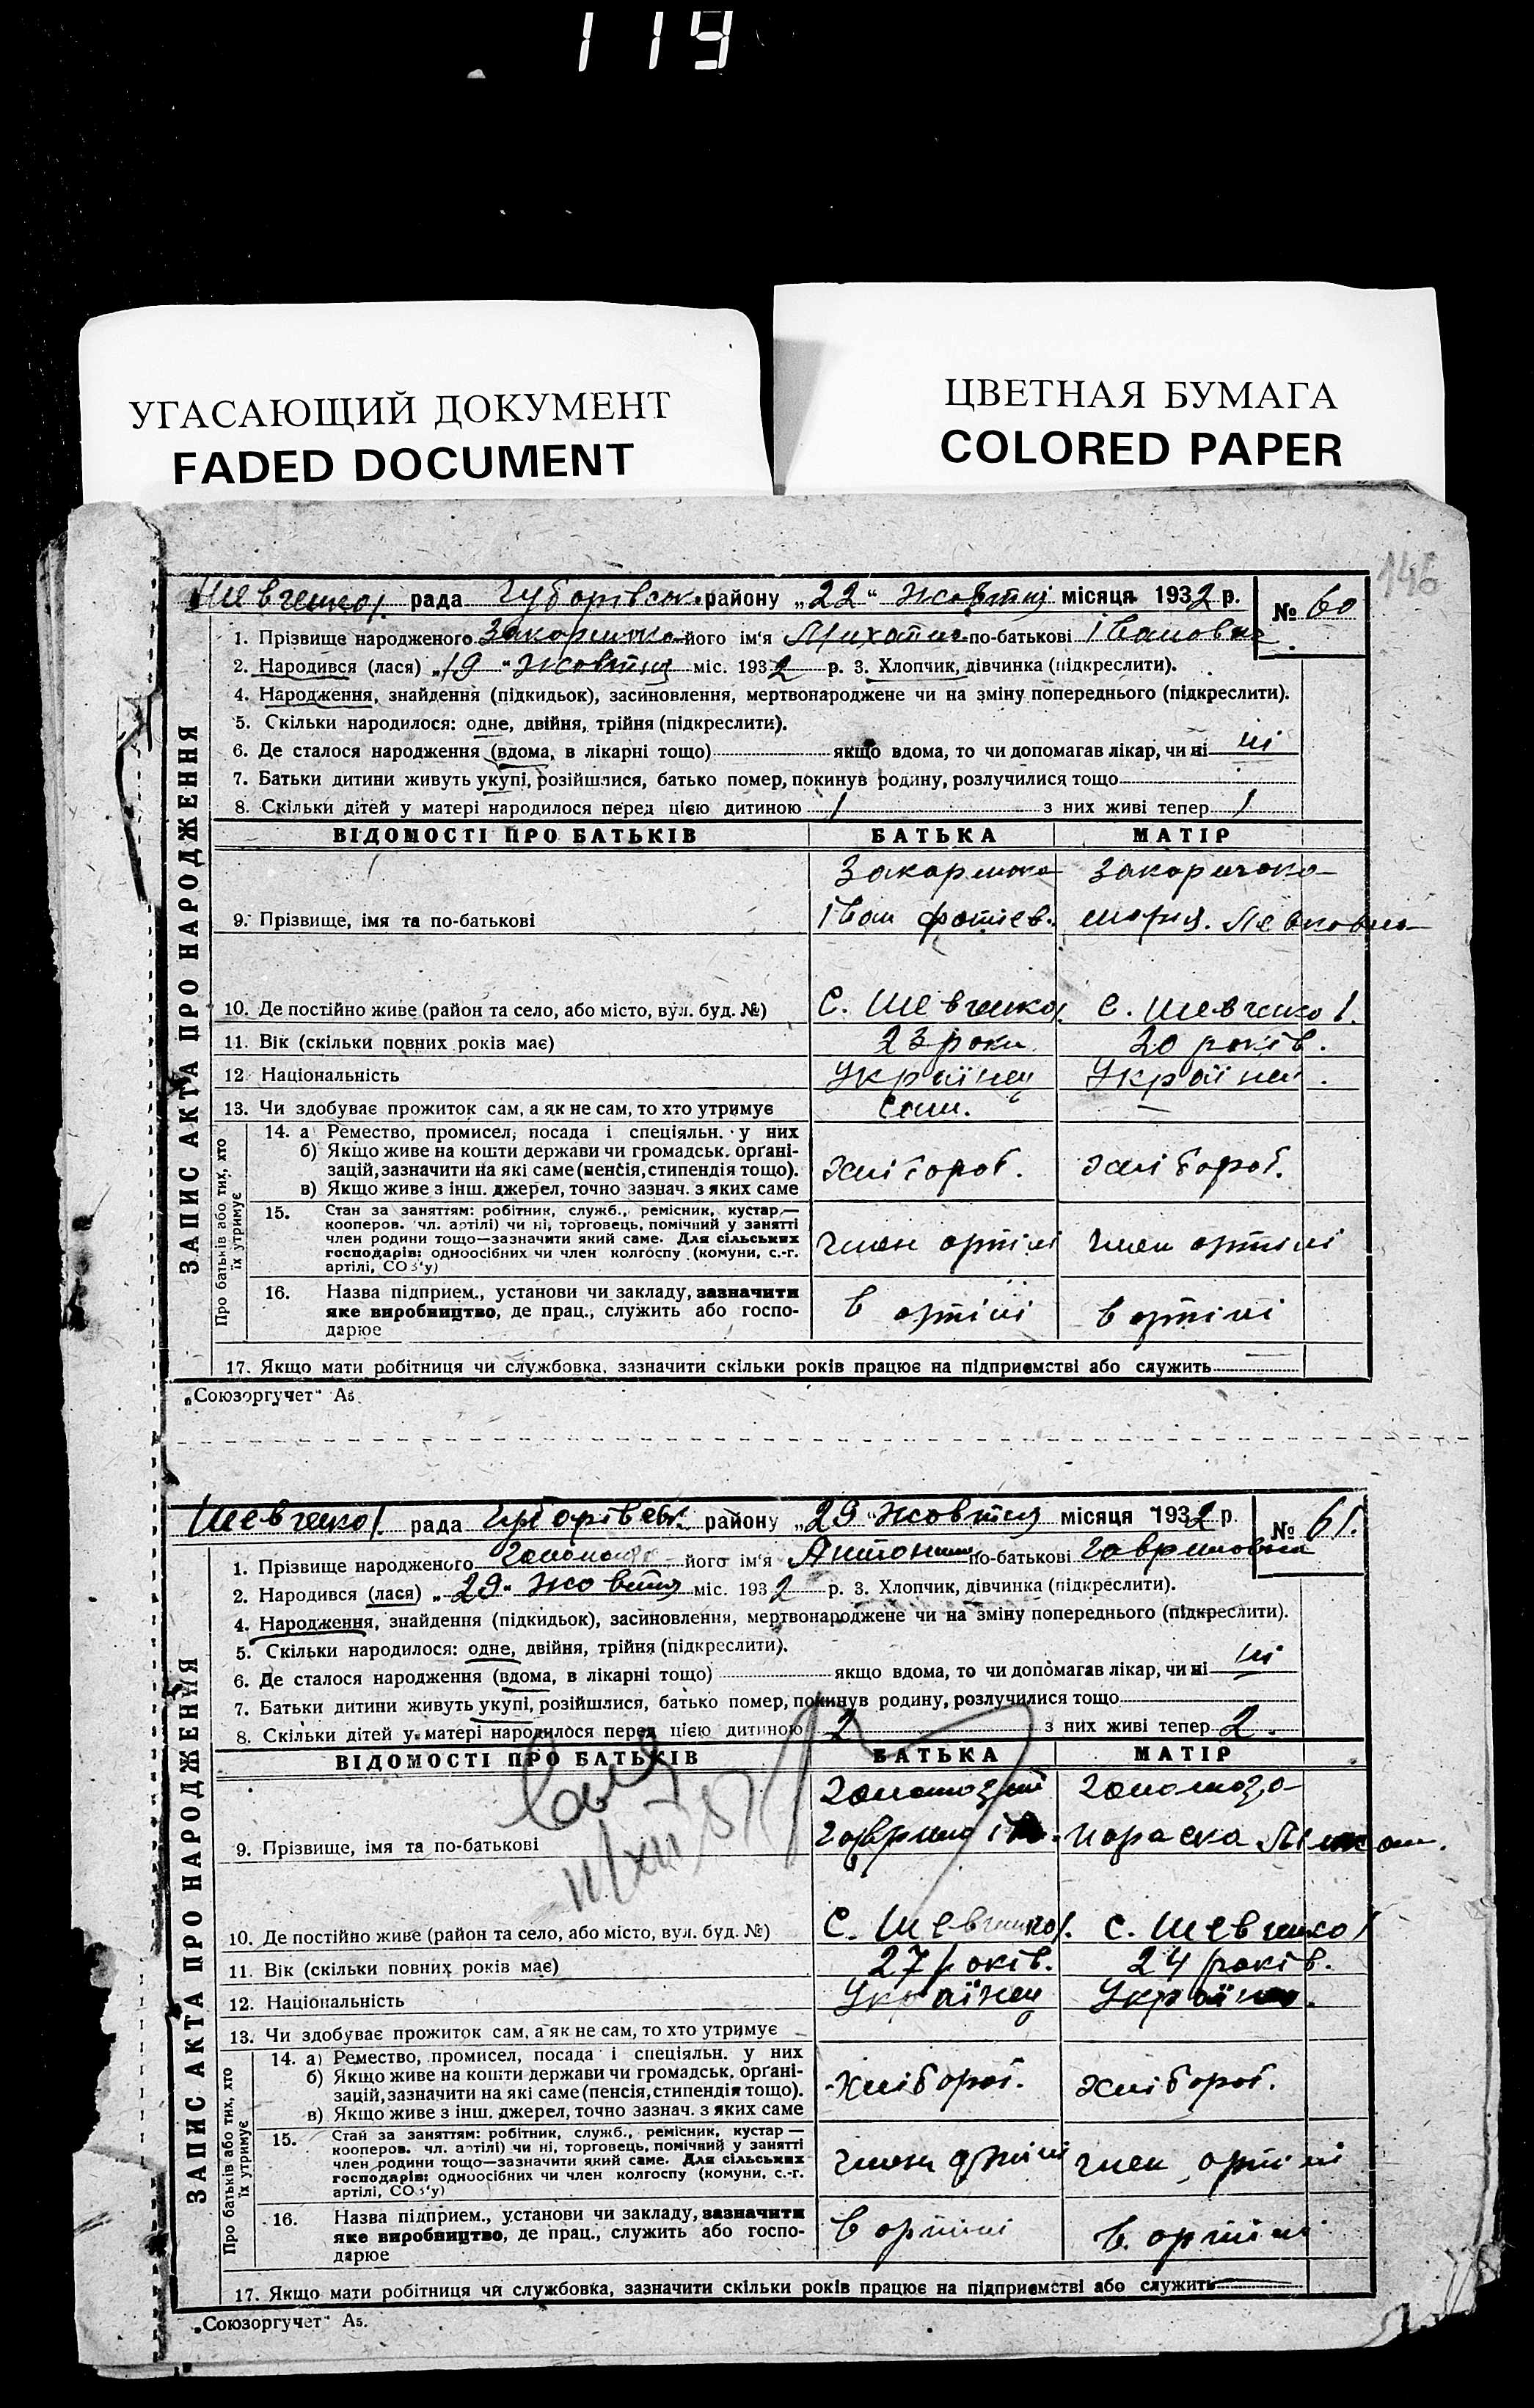 119
УГАСАЮЩИЙ ДОКУМЕНТ
FADED DOCUMENT
ЦВЕТНАЯ БУМАГА
COLORED PAPER
146
Шевченко 1. рада Губарівськ. району „22“ жовтня місяця 1932 р. № 60
ЗАПИС АКТА ПРО НАРОДЖЕННЯ
1. Прізвище народженого його ім'я Михайло по-батькові Іванович
2. Народився (лася) „19“ жовтня міс. 1932 р. 3. Хлопчик, дівчинка (підкреслити).
4. Народження, знайдення (підкидьок), засиновлення, мертвонароджене чи на зміну попереднього (підкреслити).
5. Скільки народилося: одне, двійня, трійня (підкреслити).
6. Де сталося народження (вдома, в лікарні тощо) якщо вдома, то чи допомагав лікар, чи ні ні
7. Батьки дитини живуть укупі, розійшлися, батько помер, покинув родину, розлучилися тощо
8. Скільки дітей у матері народилося перед цією дитиною 1 з них живі тепер 1
ВІДОМОСТІ ПРО БАТЬКІВ БАТЬКА МАТІР
9. Прізвище, імя та по-батькові Іван Фотіев. Марія Левковна
10. Де постійно живе (район та село, або місто, вул. буд. №) С. Шевченко 1. С. Шевченко 1.
11. Вік (скільки повних років має) 23 роки 20 років.
12. Національність Українец Українка.
13. Чи здобуває прожиток сам, а як не сам, то хто утримує Сам. —
Про батьків або тих, хто їх утримує
14. а) Ремество, промисел, посада і спеціяльн. у них
б) Якщо живе на кошти держави чи громадськ. орґані-
зацій, зазначити на які саме (пенсія, стипендія тощо). хлібороб. хлібороб.
в) Якщо живе з інш. джерел, точно зазнач. з яких саме
15. Стан за заняттям: робітник, служб., ремісник, кустар—
кооперов. чл. артілі) чи ні, торговець, помічний у занятті
член родини тощо—зазначити який саме. Для сільських член артілі член артілі
господарів: одноосібних чи член колгоспу (комуни, с.-г.
артілі, СОЗ'у)
16. Назва підприєм., установи чи закладу, зазначити
яке виробництво, де прац., служить або госпо- в артілі в артілі
дарює
17. Якщо мати робітниця чи службовка, зазначити скільки років працює на підприємстві або служить —
„Союзоргучет“ А5.
Шевченко 1. рада Губарівськ. району „29“ жовтня місяця 1932 р. № 61.
ЗАПИС АКТА ПРО НАРОДЖЕННЯ
1. Прізвище народженого його ім'я по-батькові Гавриловна
2. Народився (лася) „29“ жовтня міс. 1932 р. 3. Хлопчик, дівчинка (підкреслити).
4. Народження, знайдення (підкидьок), засиновлення, мертвонароджене чи на зміну попереднього (підкреслити).
5. Скільки народилося: одне, двійня, трійня (підкреслити).
6. Де сталося народження (вдома, в лікарні тощо) якщо вдома, то чи допомагав лікар, чи ні ні
7. Батьки дитини живуть укупі, розійшлися, батько помер, покинув родину, розлучилися тощо
8. Скільки дітей у матері народилося перед цією дитиною 2 з них живі тепер 2.
ВІДОМОСТІ ПРО БАТЬКІВ БАТЬКА МАТІР
9. Прізвище, імя та по-батькові Гаврило Ів. Параска
10. Де постійно живе (район та село, або місто, вул. буд. №) С. Шевченко 1. С. Шевченко 1
11. Вік (скільки повних років має) 27 років. 24 років.
12. Національність Українец Українка.
13. Чи здобуває прожиток сам, а як не сам, то хто утримує
Про батьків або тих, хто їх утримує
14. а) Ремество, промисел, посада і спеціяльн. у них
б) Якщо живе на кошти держави чи громадськ. орґані-
зацій, зазначити на які саме (пенсія, стипендія тощо). хлібороб. хлібороб.
в) Якщо живе з інш. джерел, точно зазнач. з яких саме
15. Стан за заняттям: робітник, служб., ремісник, кустар—
кооперов. чл. артілі) чи ні, торговець, помічний у занятті
член родини тощо—зазначити який саме. Для сільських член артілі член артілі
господарів: одноосібних чи член колгоспу (комуни, с.-г.
артілі, СОЗ'у)
16. Назва підприєм., установи чи закладу, зазначити
яке виробництво, де прац., служить або госпо- в артілі в артілі
дарює
17. Якщо мати робітниця чи службовка, зазначити скільки років працює на підприємстві або служить —
„Союзоргучет“ А5.